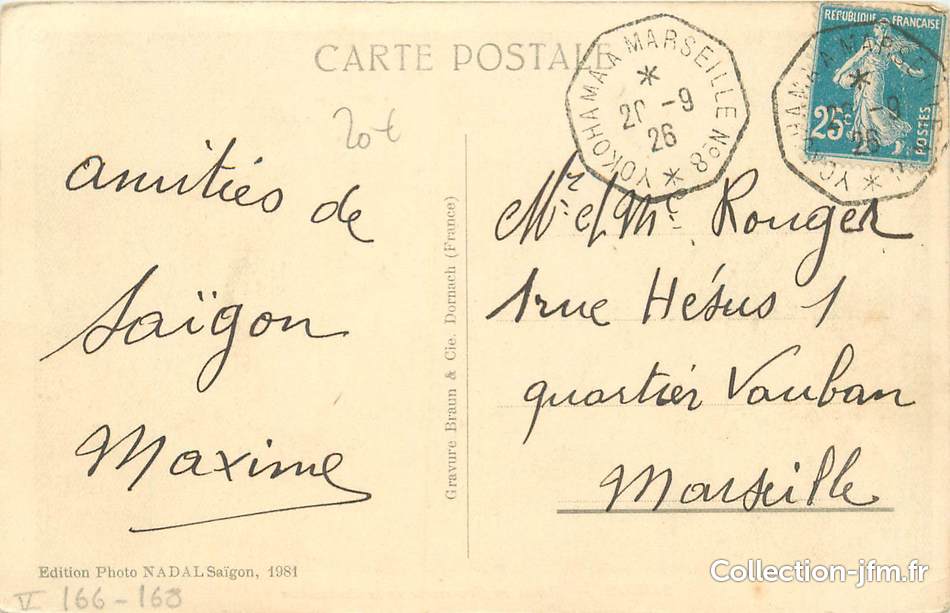 CARTE POSTALE
20€
amitiés de
Saïgon
Maxime
Gravure Braun & Cie. Dornach (France)
Edition Photo NADAL Saïgon, 1981
V 166-168
YOKOHAMA A MARSEILLE N° 8
20-9
26
REPUBLIQUE FRANÇAISE
25c
POSTES
YOKOHAMA A MARSEILLE
20-9
26
Mr et Me Rouger
1 rue Hésus 1
quartier Vauban
Marseille
Collection-jfm.fr